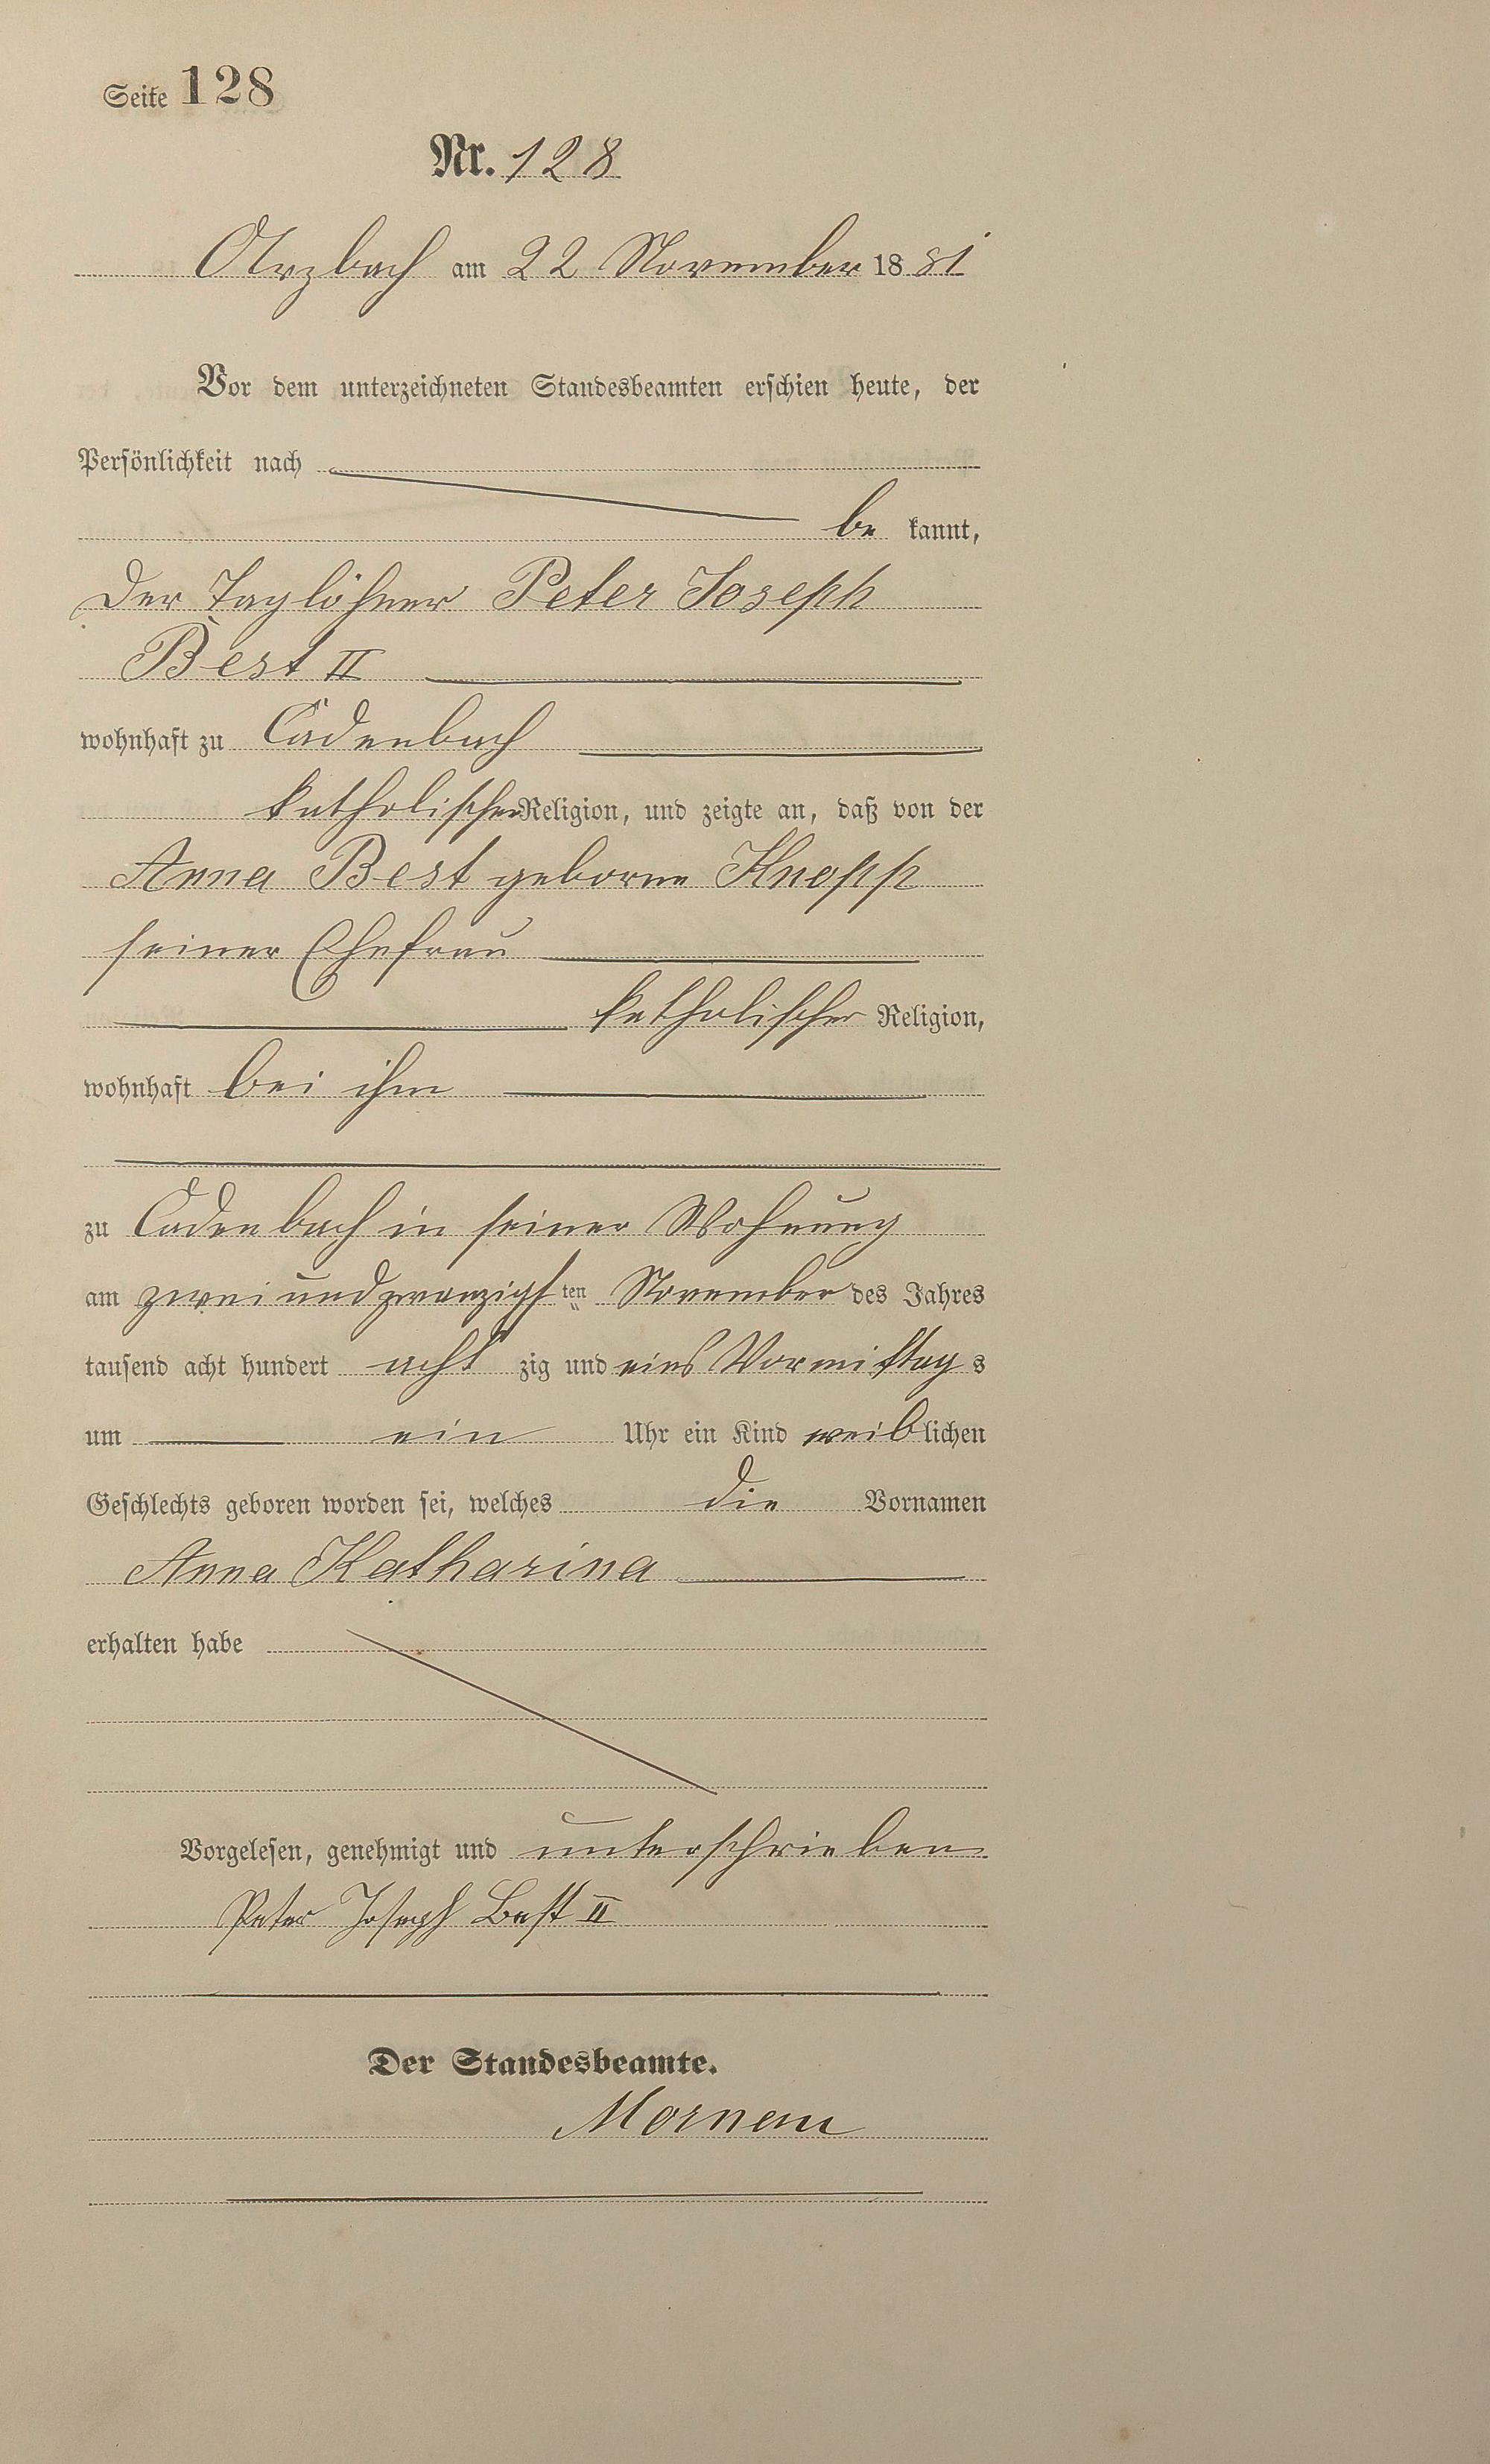 Seite 128
Nr. 128
Arzbach am 22 November 1881
Vor dem unterzeichneten Standesbeamten erschien heute, der
Persönlichkeit nach
be kannt,
der Taglöhner Peter Joseph
Best II
wohnhaft zu Cadenbach
katholischer Religion, und zeigte an, daß von der
Anna Best geborne Knopp
seiner Ehefrau
katholischer Religion,
wohnhaft bei ihm
zu Cadenbach in seiner Wohnung
am zwei und zwanzigsten November des Jahres
tausend acht hundert acht zig und eins Vormittags
um ein Uhr ein Kind weiblichen
Geschlechts geboren worden sei, welches die Vornamen
Anna Katharina
erhalten habe
Vorgelesen, genehmigt und unterschrieben
Peter Joseph Best II
Der Standesbeamte.